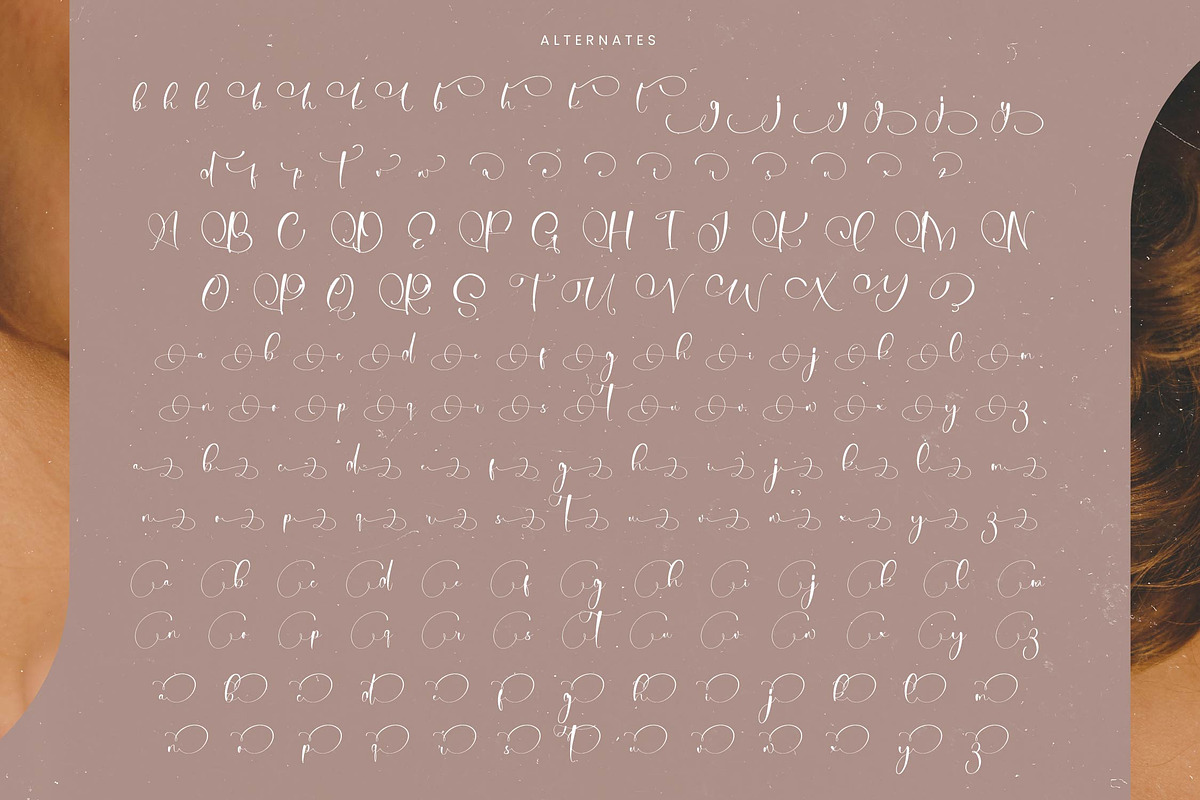 ALTERNATES
b h k b h k l b h k l g j y g j y
d f p t v w a c e i r s u x z
A B C D E F G H I J K L M N
O P Q R S T U V W X Y Z
a b c d e f g h i j k l m
n o p q r s t u v w x y z
a b c d e f g h i j k l m
n o p q r s t u v w x y z
a b c d e f g h i j k l m
n o p q r s t u v w x y z
a b c d e f g h i j k l m
n o p q r s t u v w x y z